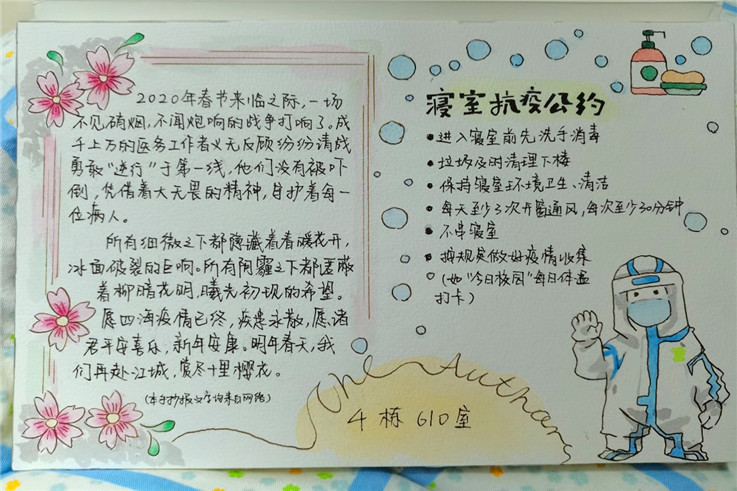 2020年春节来临之际,一场
不见硝烟,不闻炮响的战争打响了。成
千上万的医务工作者义无反顾纷纷请战
勇敢"逆行"于第一线,他们没有被吓
倒,凭借着大无畏的精神,守护着每一
位病人。
所有细微之下都隐藏着春暖花开,
冰面破裂的巨响。所有阴霾之下都遮蔽
着柳暗花明,曦光初现的希望。
愿四海疫情已终,疾患永散,愿诸
君平安喜乐,新年安康。明年春天,我
们再赴江城,赏尽十里樱花。
(本手抄报文字均来自网络)
寝室抗疫公约
• 进入寝室前先洗手消毒
• 垃圾及时清理下楼
• 保持寝室环境卫生、清洁
• 每天至少3次开窗通风,每次至少30分钟
• 不串寝室
• 按规定做好疫情收集
(如"今日校园"每日体温
打卡)
The Authors
4栋 610室